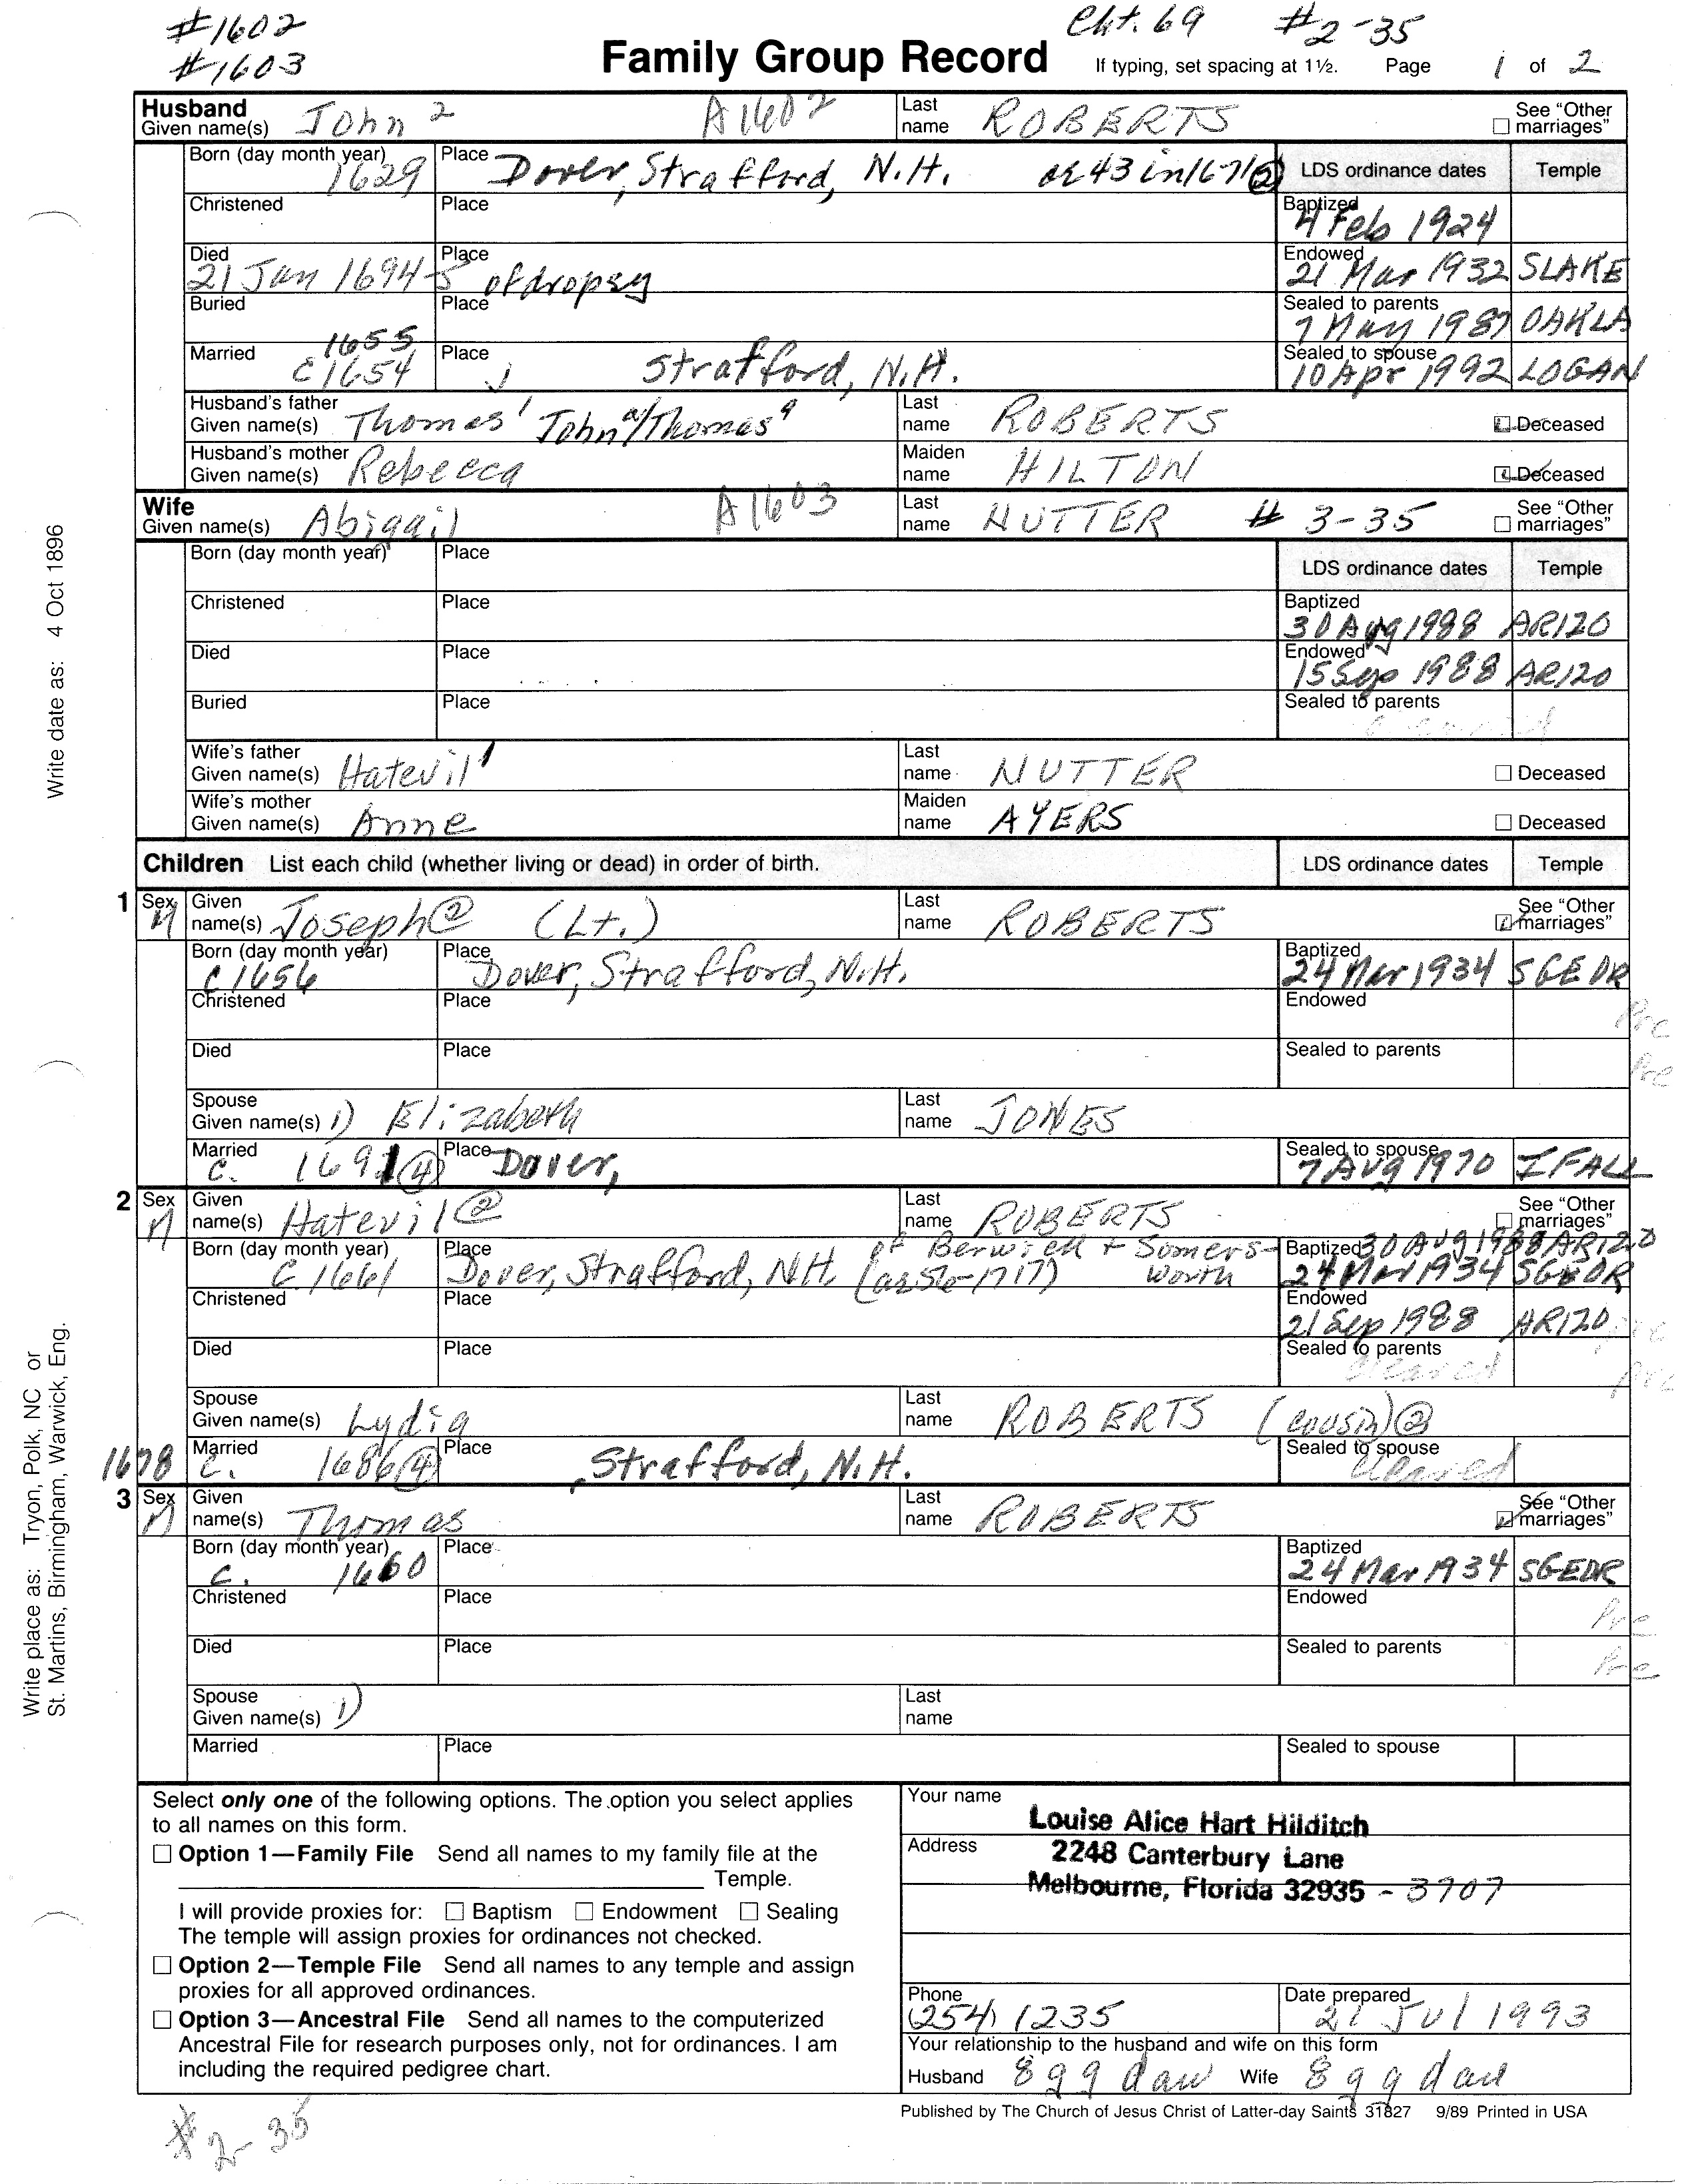 #1602
#1603
Cht. 69 #2-35
Family Group Record If typing, set spacing at 1½. Page 1 of 2
Husband
Given name(s) John 2 A1602 Last name ROBERTS See "Other marriages"
Born (day month year) 1629 Place Dover, Strafford, N.H. or 43 in 1671 ② LDS ordinance dates Temple
Christened Place Baptized 4 Feb 1924
Died 21 Jan 1694-5 Place of dropsy Endowed 21 Mar 1932 SLAKE
Buried Place Sealed to parents 7 May 1987 OAKLA
Married 1655 c1654 Place Strafford, N.H. Sealed to spouse 10 Apr 1992 LOGAN
Husband's father
Given name(s) Thomas 1 John a/Thomas a Last name ROBERTS Deceased
Husband's mother
Given name(s) Rebecca Maiden name HILTON Deceased
Wife
Given name(s) Abigail A1603 Last name NUTTER # 3-35 See "Other marriages"
Born (day month year) Place LDS ordinance dates Temple
Christened Place Baptized 30 Aug 1988 ARIZO
Died Place Endowed 15 Sep 1988 ARIZO
Buried Place Sealed to parents cleared
Wife's father
Given name(s) Hatevil 1 Last name NUTTER Deceased
Wife's mother
Given name(s) Anne Maiden name AYERS Deceased
Children List each child (whether living or dead) in order of birth. LDS ordinance dates Temple
1 Sex M Given name(s) Joseph @ (Lt.) Last name ROBERTS See "Other marriages"
Born (day month year) c1656 Place Dover, Strafford, N.H. Baptized 24 Mar 1934 SGEOR
Christened Place Endowed Pre
Died Place Sealed to parents Pre
Spouse
Given name(s) 1) Elizabeth Last name JONES
Married c. 1691 ④ Place Dover, Sealed to spouse 7 Aug 1970 IFALL
2 Sex M Given name(s) Hatevil @ Last name ROBERTS See "Other marriages"
Born (day month year) c1661 Place Dover, Strafford, NH. of Berwick + Somersworth (az56-1717) Baptized 30 Aug 1988 ARIZO
24 Mar 1934 SGEOR
Christened Place Endowed 21 Sep 1988 ARIZO pre
Died Place Sealed to parents cleared pre
Spouse
Given name(s) Lydia Last name ROBERTS (cousin) @
1678 Married c. 1686 ④ Place , Strafford, N.H. Sealed to spouse cleared
3 Sex M Given name(s) Thomas Last name ROBERTS See "Other marriages"
Born (day month year) c. 1660 Place Baptized 24 Mar 1934 SGEOR
Christened Place Endowed Pre
Died Place Sealed to parents Pre
Spouse
Given name(s) 1) Last name
Married Place Sealed to spouse
Select only one of the following options. The option you select applies
to all names on this form.
Option 1—Family File Send all names to my family file at the
Temple.
I will provide proxies for: Baptism Endowment Sealing
The temple will assign proxies for ordinances not checked.
Option 2—Temple File Send all names to any temple and assign
proxies for all approved ordinances.
Option 3—Ancestral File Send all names to the computerized
Ancestral File for research purposes only, not for ordinances. I am
including the required pedigree chart.
Your name Louise Alice Hart Hilditch
Address 2248 Canterbury Lane
Melbourne, Florida 32935 - 3707
Phone (254) 1235 Date prepared 21 Jul 1993
Your relationship to the husband and wife on this form
Husband 8 g g dau Wife 8 g g dau
Published by The Church of Jesus Christ of Latter-day Saints 31827 9/89 Printed in USA
#2-35
Write date as: 4 Oct 1896
Write place as: Tryon, Polk, NC or
St. Martins, Birmingham, Warwick, Eng.